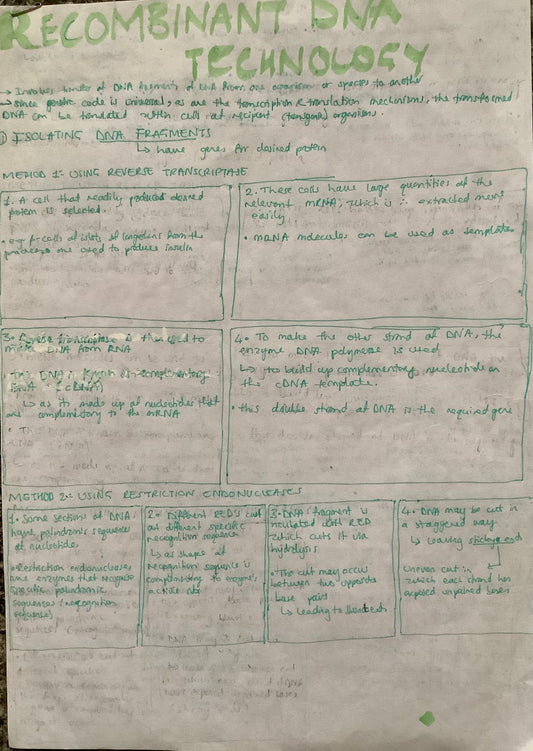 RECOMBINANT DNA
TECHNOLOGY
→ Involves transfer of DNA fragments of DNA from one organism or species to another
→ since genetic code is universal, as are the transcription & translation mechanisms, the transformed
DNA can be translated within cells of recipient (transgenic) organisms.
① ISOLATING DNA FRAGMENTS
↳ have genes for desired protein
METHOD 1: USING REVERSE TRANSCRIPTASE
1. A cell that readily produces desired
protein is selected.
• e.g β-cells of islets of langerhans from the
pancreas are used to produce insulin
2. These cells have large quantities of the
relevant mRNA, which is ∴ extracted more
easily
• mRNA molecules can be used as template
3. Reverse transcriptase is then used to
make DNA from RNA
This DNA is known as complementary
DNA (cDNA)
↳ as its made up of nucleotides that
are complementary to the mRNA
4. To make the other strand of DNA, the
enzyme DNA polymerase is used
↳ to build up complementary nucleotides on
the cDNA template.
• this double strand of DNA is the required gene
METHOD 2: USING RESTRICTION ENDONUCLEASES
1. Some sections of DNA
have palindromic sequences
of nucleotide.
• Restriction endonucleases
are enzymes that recognise
specific palindromic
sequences (recognition
sequence)
2. Different RED's cut
at different specific
recognition sequence
↳ as shape of
recognition sequence is
complementary to enzyme's
active site
3. DNA fragment is
incubated with RED
which cuts it via
hydrolysis
• The cut may occur
between two opposite
base pairs
↳ leading to blunt ends
4. DNA may be cut in
a staggered way
↳ leaving sticky end
uneven cut in
which each strand has
exposed unpaired bases